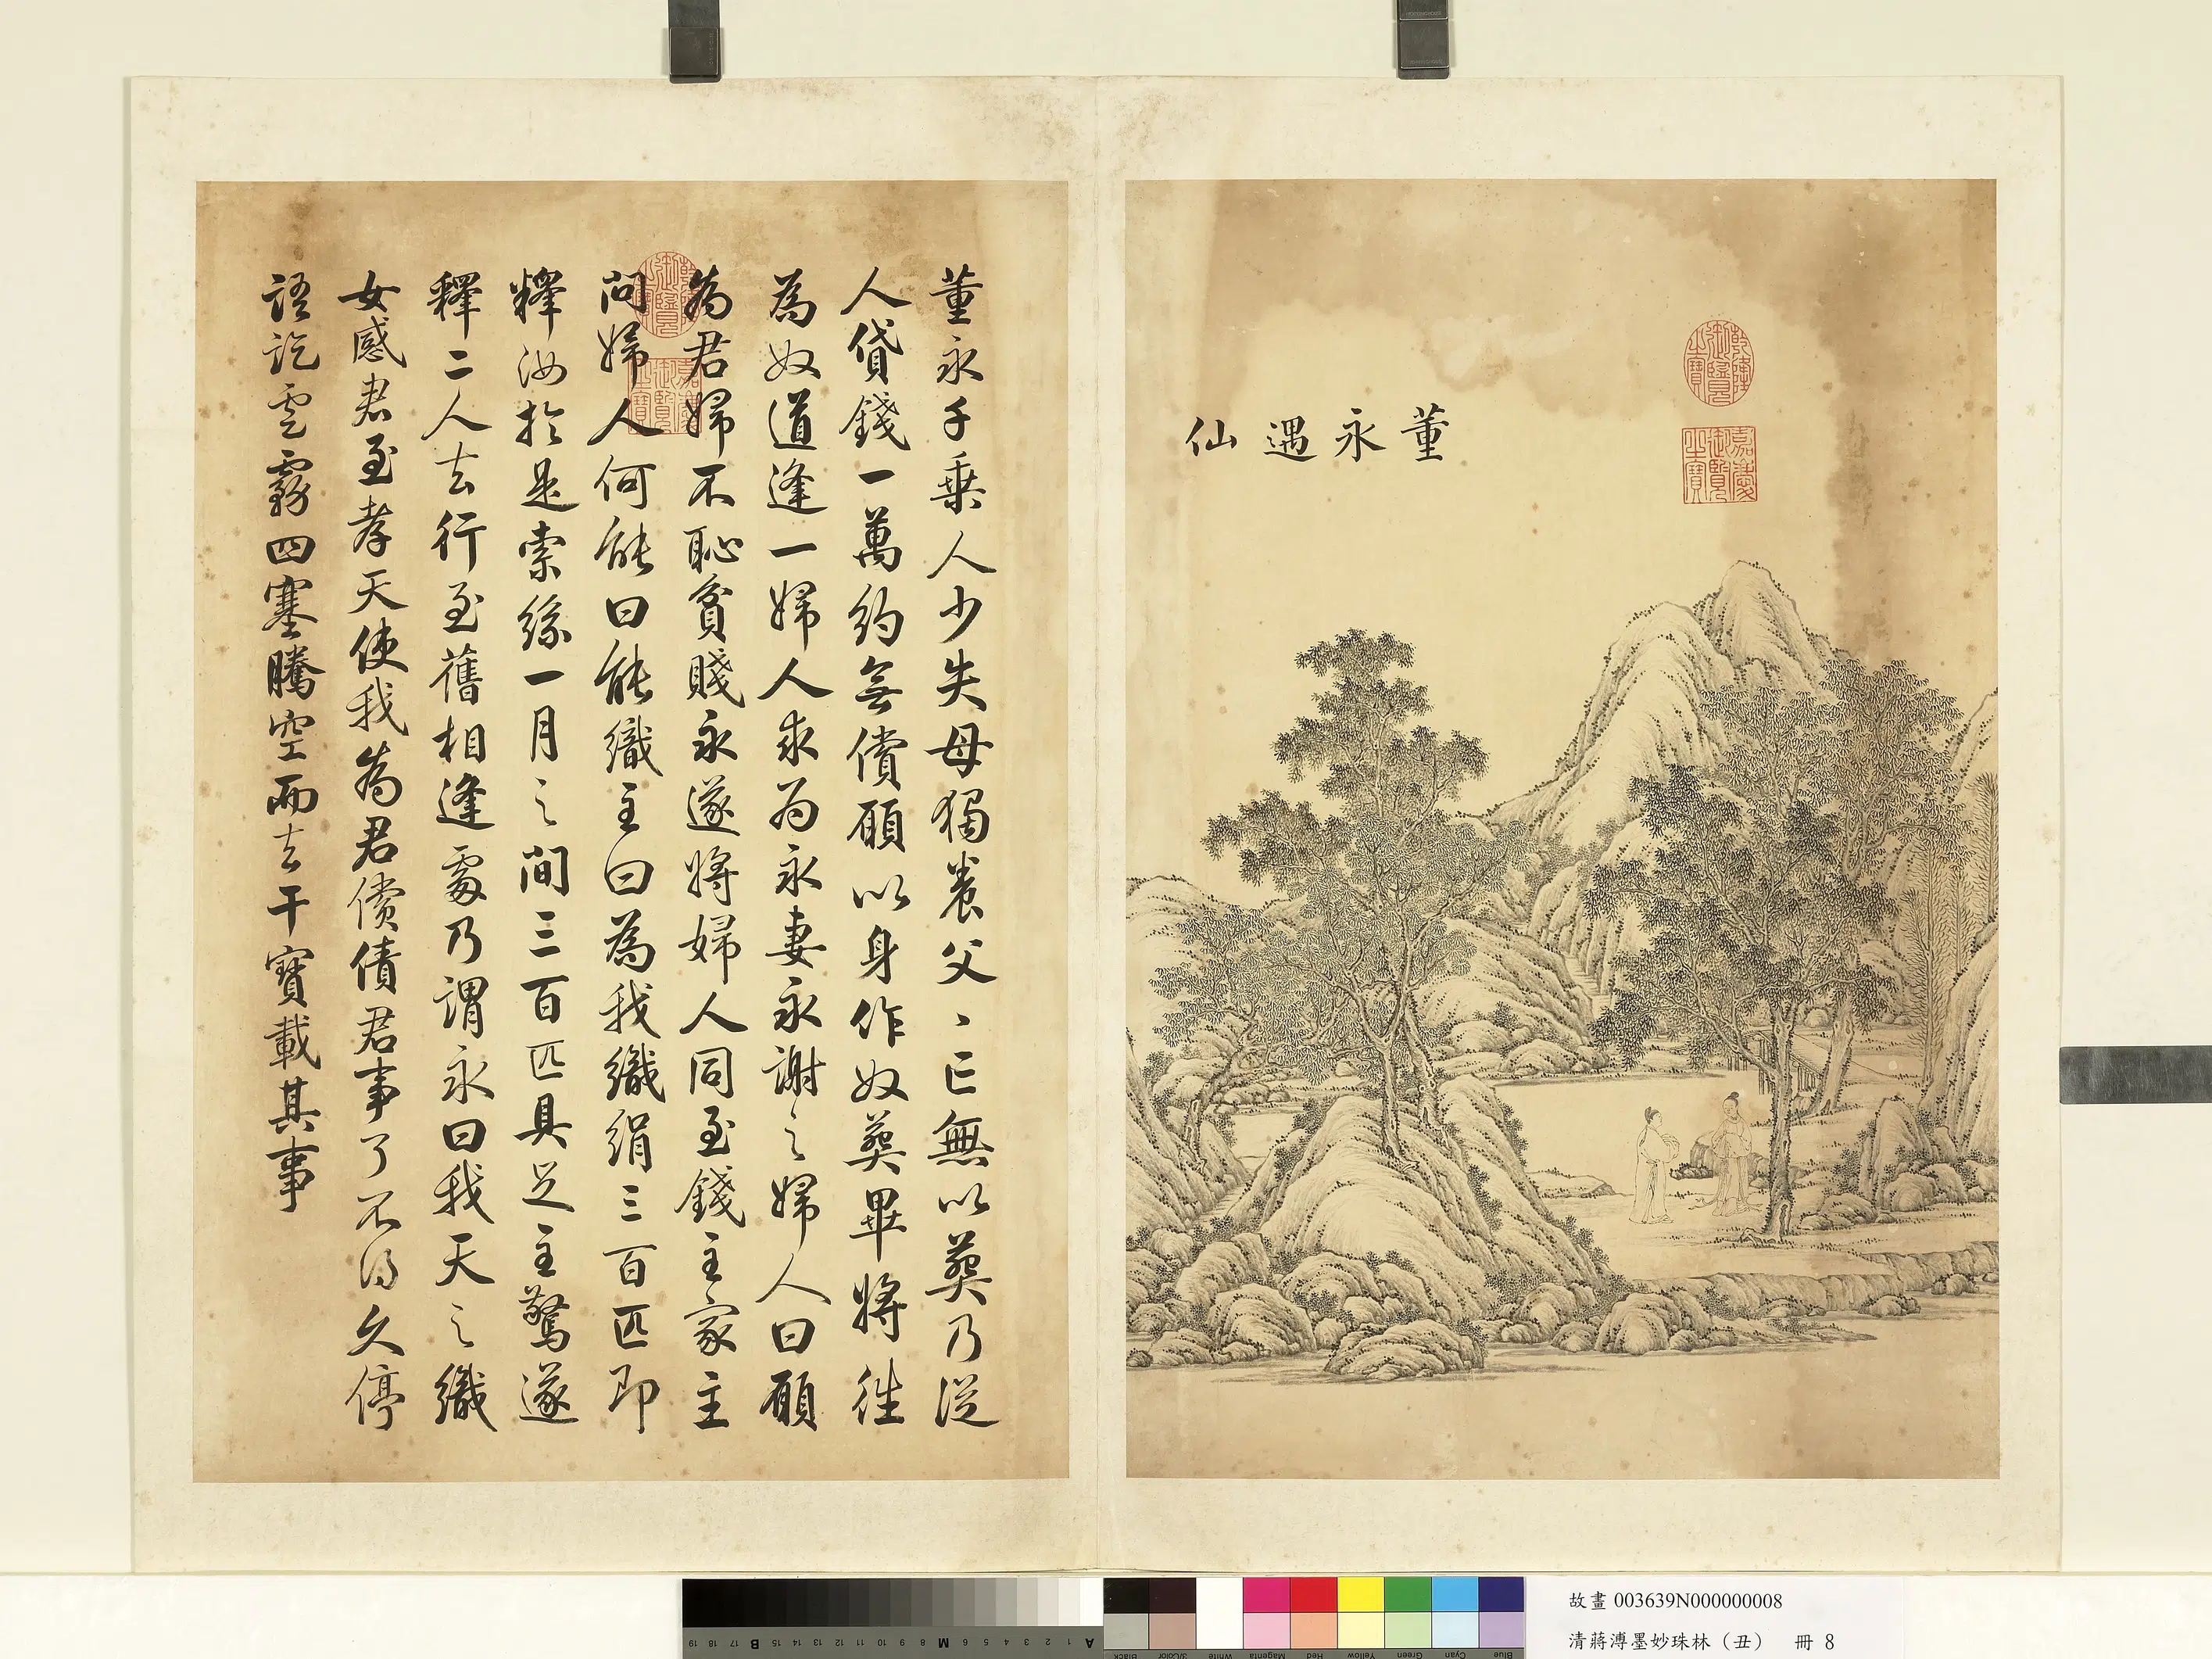 董永遇仙
乾隆御覽之寶
嘉慶御覽之寶
董永千乘人少失母獨養父〻亡無以葬乃從
人貸錢一萬約無償願以身作奴葬畢將往
為奴道逢一婦人求為永妻永謝之婦人曰願
為君婦不恥貧賤永遂將婦人同至錢主家主
問婦人何能曰能織主曰為我織絹三百匹即
釋汝於是索絲一月之間三百匹具足主驚遂
釋二人去行至舊相逢處乃謂永曰我天之織
女感君至孝天使我為君償債君事了不得久停
語訖雲霧四塞騰空而去干寶載其事
乾隆御覽之寶
嘉慶御覽之寶
A 1 2 3 4 5 6 M 8 9 10 11 12 13 14 15 B 17 18 19
Blue Cyan Green Yellow Red Magenta White 3/Color Black
故畫 003639N000000008
清蔣溥墨妙珠林（丑） 冊 8